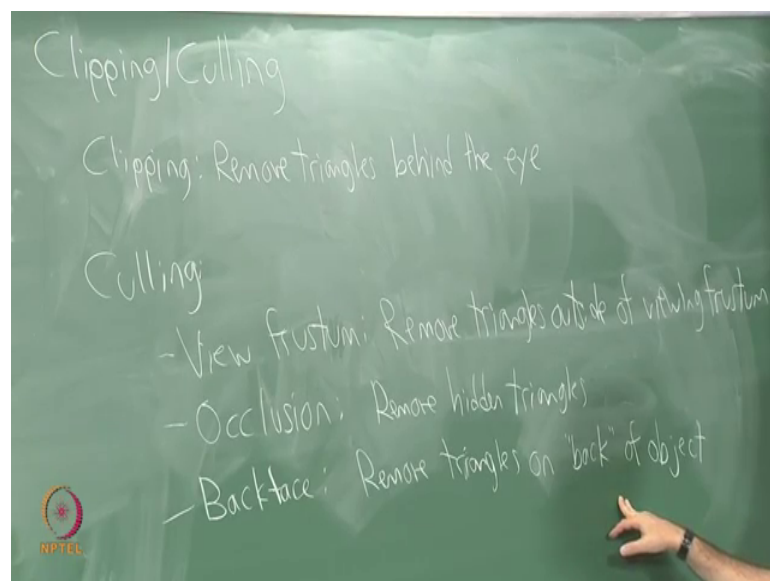 Clipping/Culling
Clipping: Remove triangles behind the eye
Culling:
- View frustum: Remove triangles outside of viewing frustum
- Occlusion: Remove hidden triangles
- Backface: Remove triangles on "back" of object
NPTEL